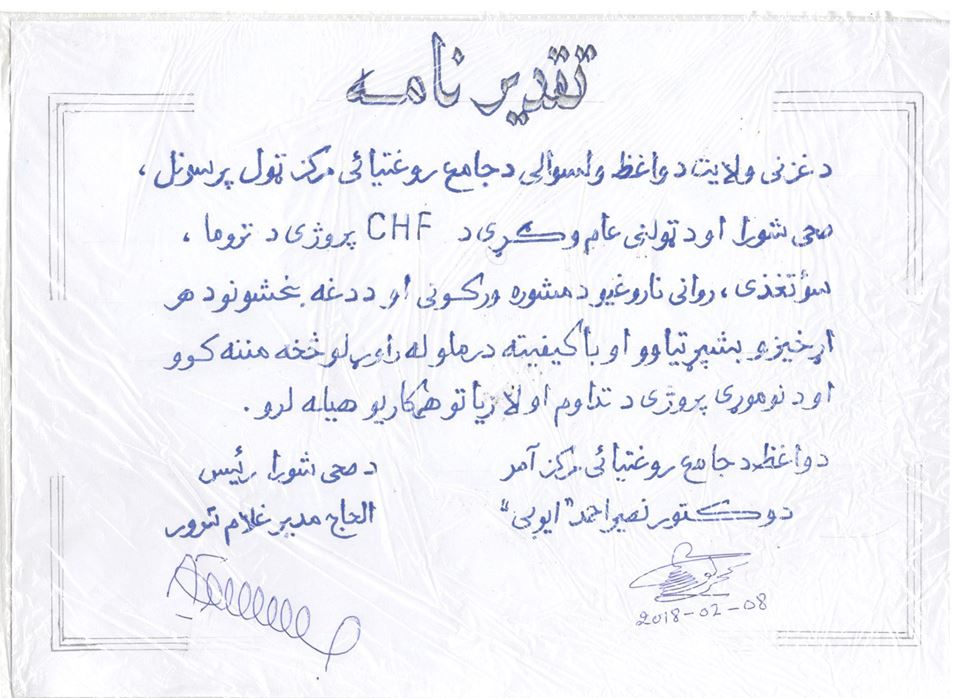 تقدیر نامه
د غزنی ولایت د واغظ ولسوالی د جامع روغتیائی مرکز ټول پرسونل ،
صحی شورا او د ټولنی عام وګړی د CHF پروژی د تروما ،
سؤتغذی ، روانی ناروغیو د مشوره ورکونی او ددغه بخشونو د هر
اړخیزو بشپړتیاوو او باکیفیته درملو له راوړلو څخه مننه کوو
او د نوموړی پروژی د تداوم او لا زیاتو همکاریو هیله لرو .
د واغظ د جامع روغتیائی مرکز آمر
دوکتور نصیراحمد "ایوبی"
د صحی شورا رئیس
الحاج مدیر غلام سرور
2018-02-08